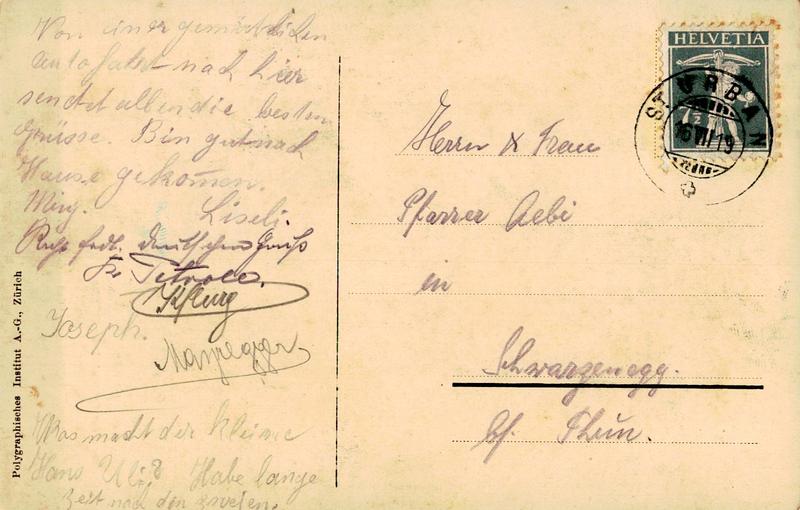 Von einer gemütlichen
Autofahrt nach hier
sendet allen die besten
Grüsse. Bin gut nach
Hause gekommen.
Liseli.
Joseph.
Was macht der kleine
Hans Uli? Habe lange
Zeit nach den zweien.
Polygraphisches Institut A.-G., Zürich
HELVETIA
7½
ST. URBAN
16 VII 19
Herrn & Frau
Pfarrer Aebi
in
Schwarzenegg.
bf. Thun.